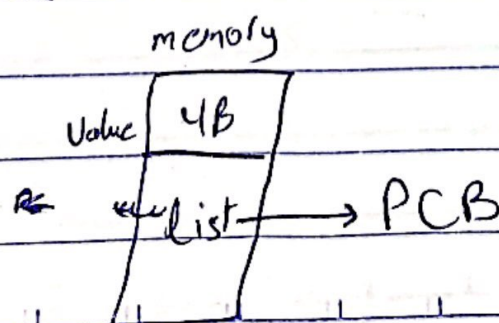 memory
Value 4B
list → PCB